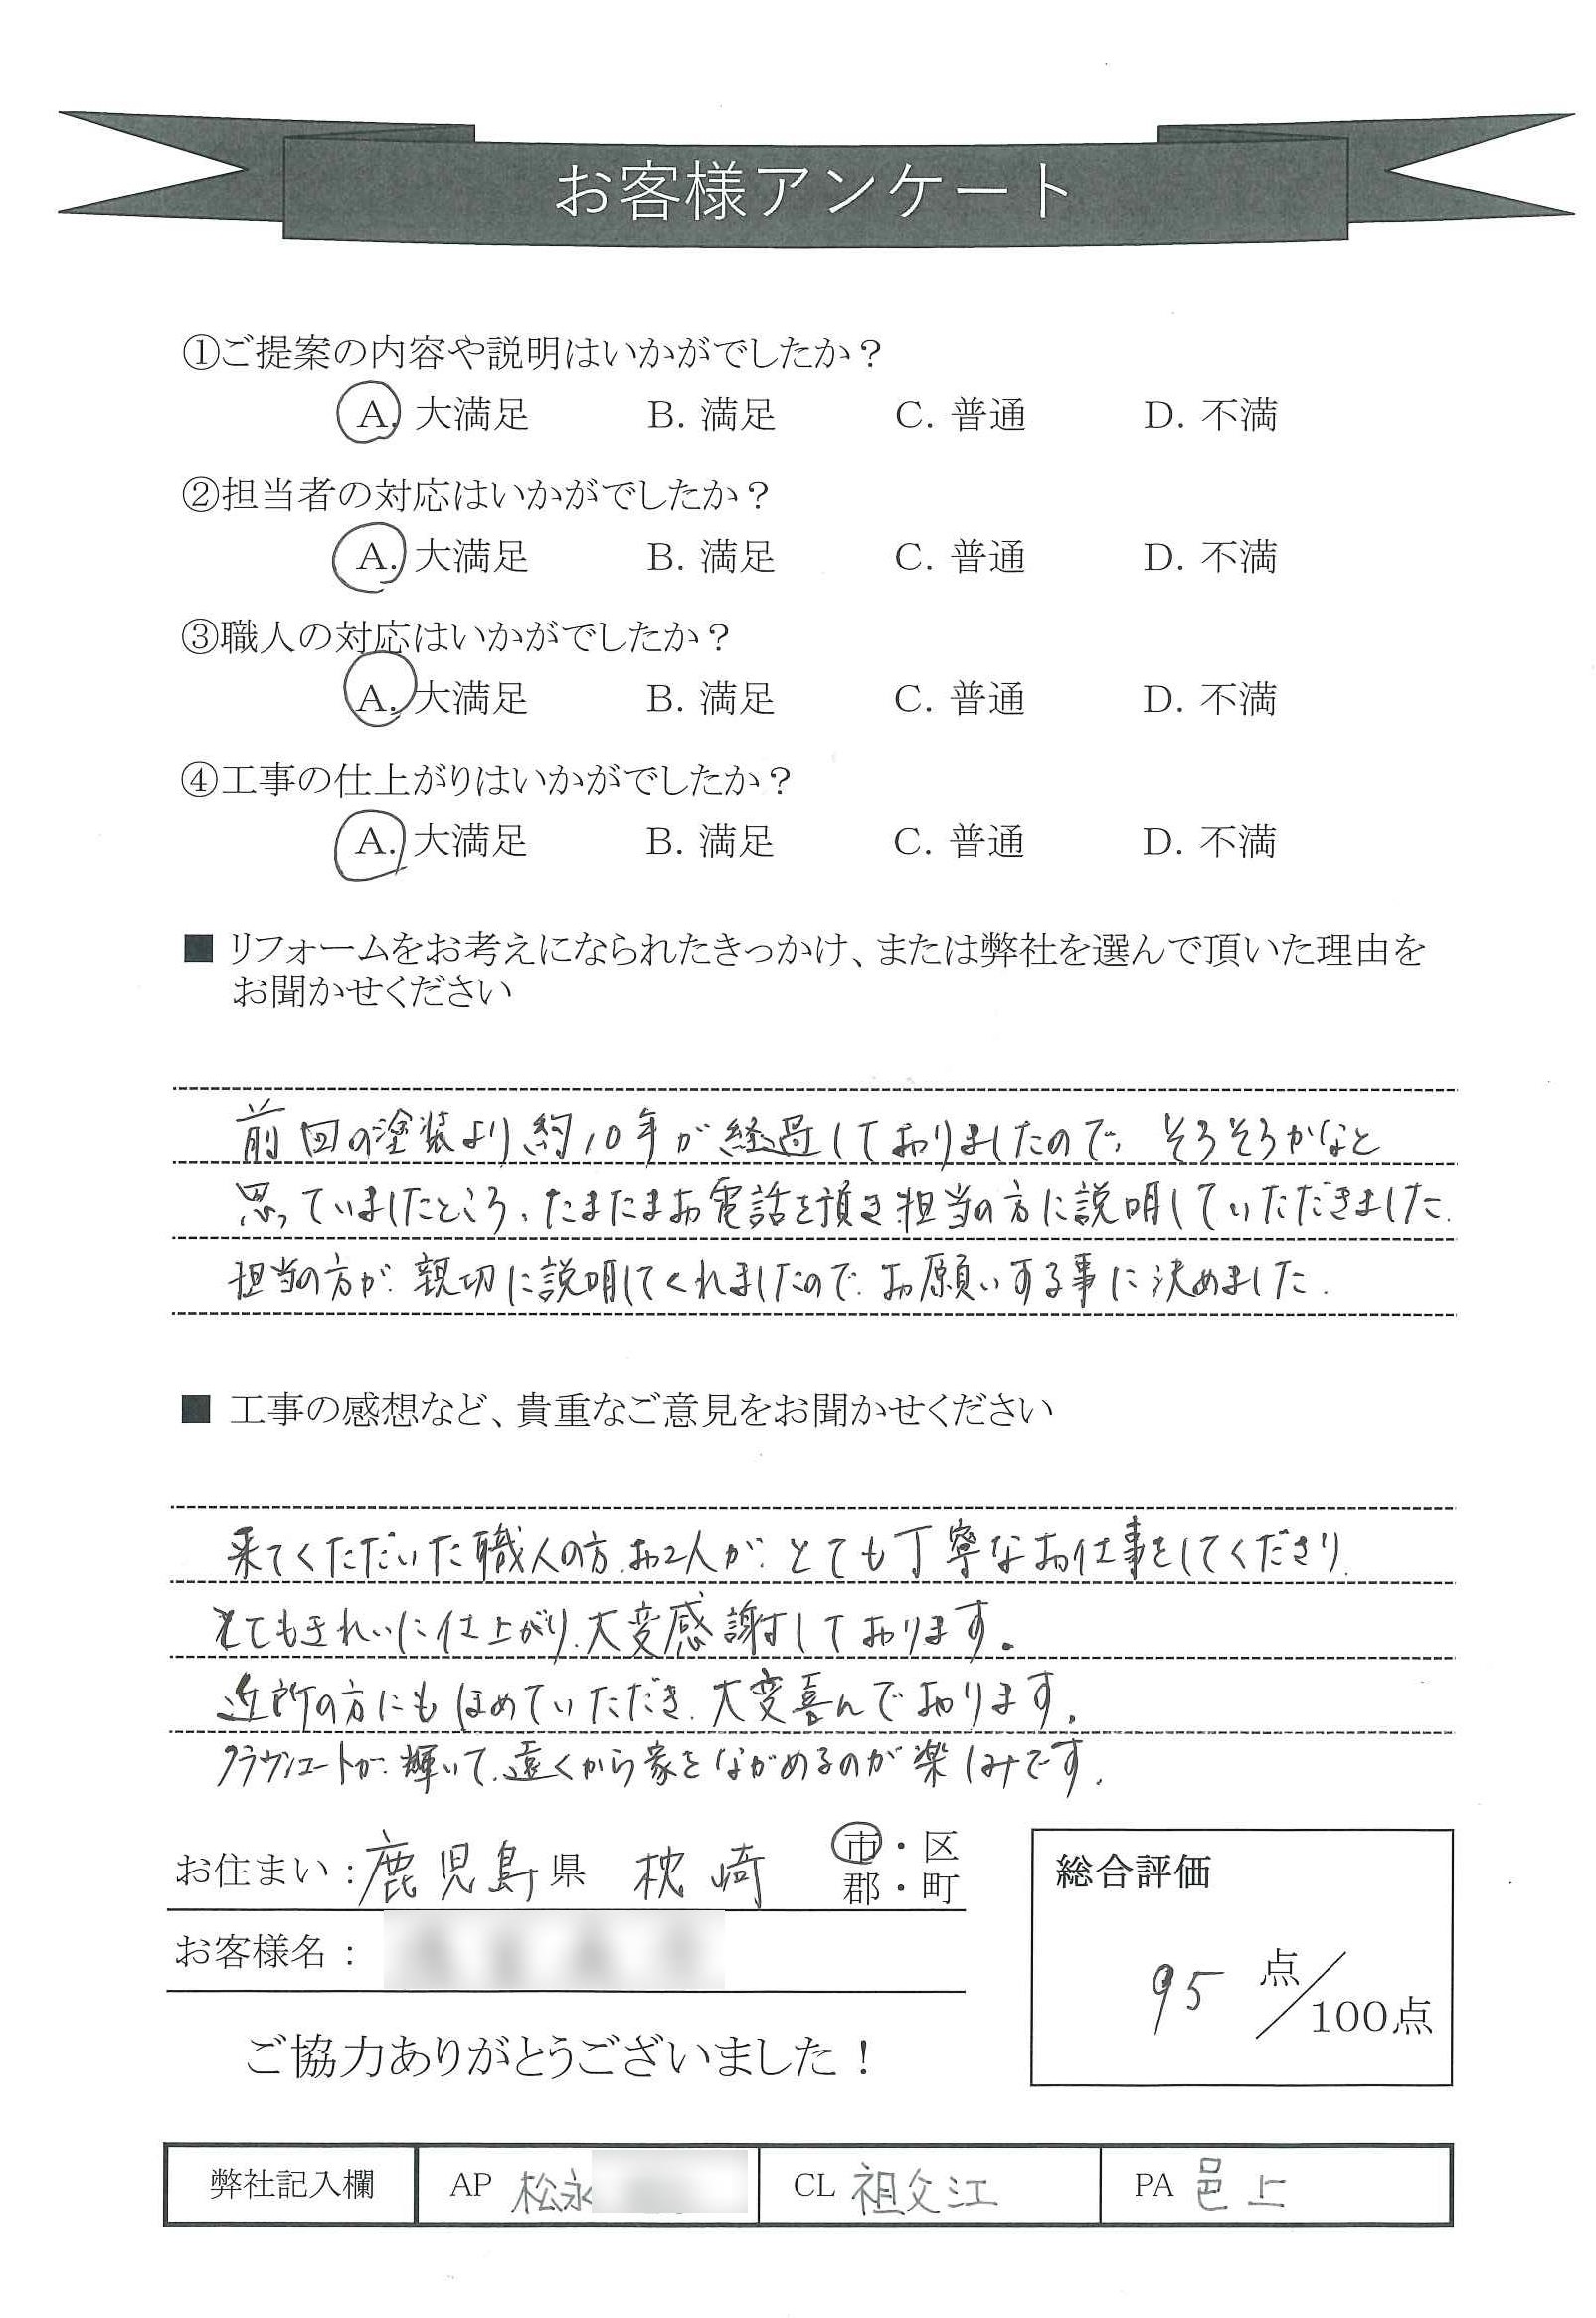 お客様アンケート
①ご提案の内容や説明はいかがでしたか？
A. 大満足 B. 満足 C. 普通 D. 不満
②担当者の対応はいかがでしたか？
A. 大満足 B. 満足 C. 普通 D. 不満
③職人の対応はいかがでしたか？
A. 大満足 B. 満足 C. 普通 D. 不満
④工事の仕上がりはいかがでしたか？
A. 大満足 B. 満足 C. 普通 D. 不満
■ リフォームをお考えになられたきっかけ、または弊社を選んで頂いた理由を
お聞かせください
前回の塗装より約10年が経過しておりましたので、そろそろかなと
思っていましたところ、たまたまお電話を頂き担当の方に説明していただきました.
担当の方が、親切に説明してくれましたので、お願いする事に決めました.
■ 工事の感想など、貴重なご意見をお聞かせください
来てくただいた職人の方、お2人が、とても丁寧なお仕事をしてくださり、
とてもきれいに仕上がり、大変感謝しております。
近所の方にもほめていただき、大変喜んでおります.
クラウンコートが、輝いて、遠くから家をながめるのが楽しみです.
お住まい：鹿児島県 枕崎 市・区
郡・町
お客様名：
総合評価
95 点／100点
ご協力ありがとうございました！
弊社記入欄 AP 松永 CL 祖父江 PA 邑上